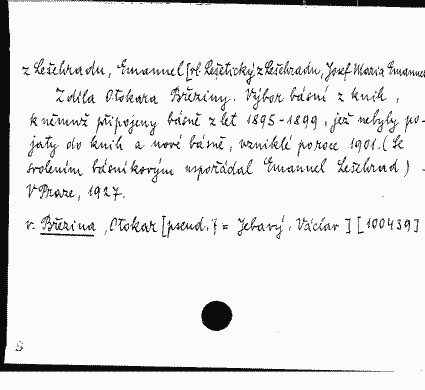 z Lešehradu, Emanuel [vl. Lešetický z Lešehradu, Josef Maria Emanuel
Z díla Otokara Březiny. Výbor básní z knih,
k němuž připojeny básně z let 1895-1899, jež nebyly po-
jaty do knih a nové básně, vzniklé po roce 1901. (Se
svolením básníkovým uspořádal Emanuel Lešehrad)
V Praze, 1927.
v. Březina, Otokar [pseud.] = Jebavý, Václav] [100439]
S